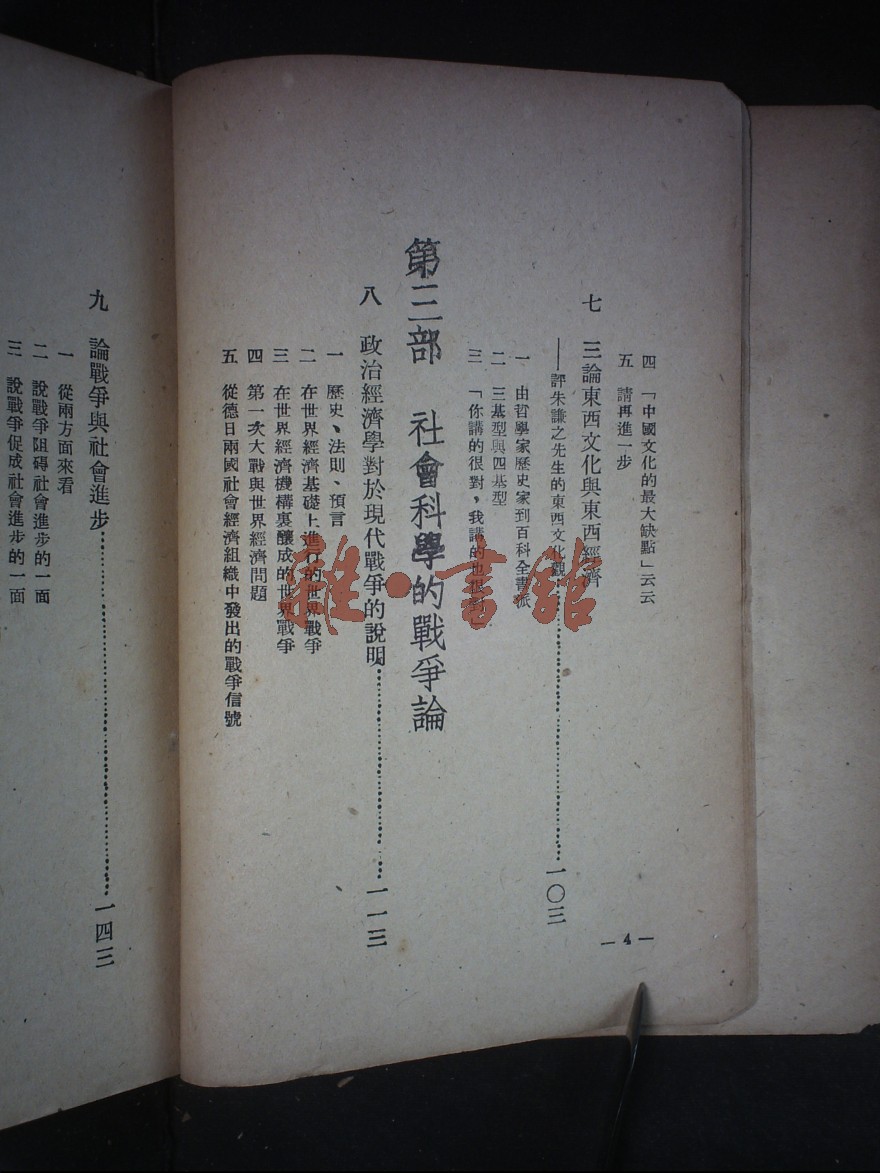 四　「中國文化的最大缺點」云云
五　請再進一步
七　三論東西文化與東西經濟
——評朱謙之先生的東西文化觀……一〇三
一　由哲學家歷史家到百科全書派
二　三基型與四基型
三　「你講的很對，我講的也很對」
第三部　社會科學的戰爭論
八　政治經濟學對於現代戰爭的說明……一一三
一　歷史、法則、預言
二　在世界經濟基礎上進行的世界戰爭
三　在世界經濟機構裏釀成的世界戰爭
四　第一次大戰與世界經濟問題
五　從德日兩國社會經濟組織中發出的戰爭信號
—4—
九　論戰爭與社會進步……一四三
一　從兩方面來看
二　說戰爭阻碍社會進步的一面
三　說戰爭促成社會進步的一面
雜·書館